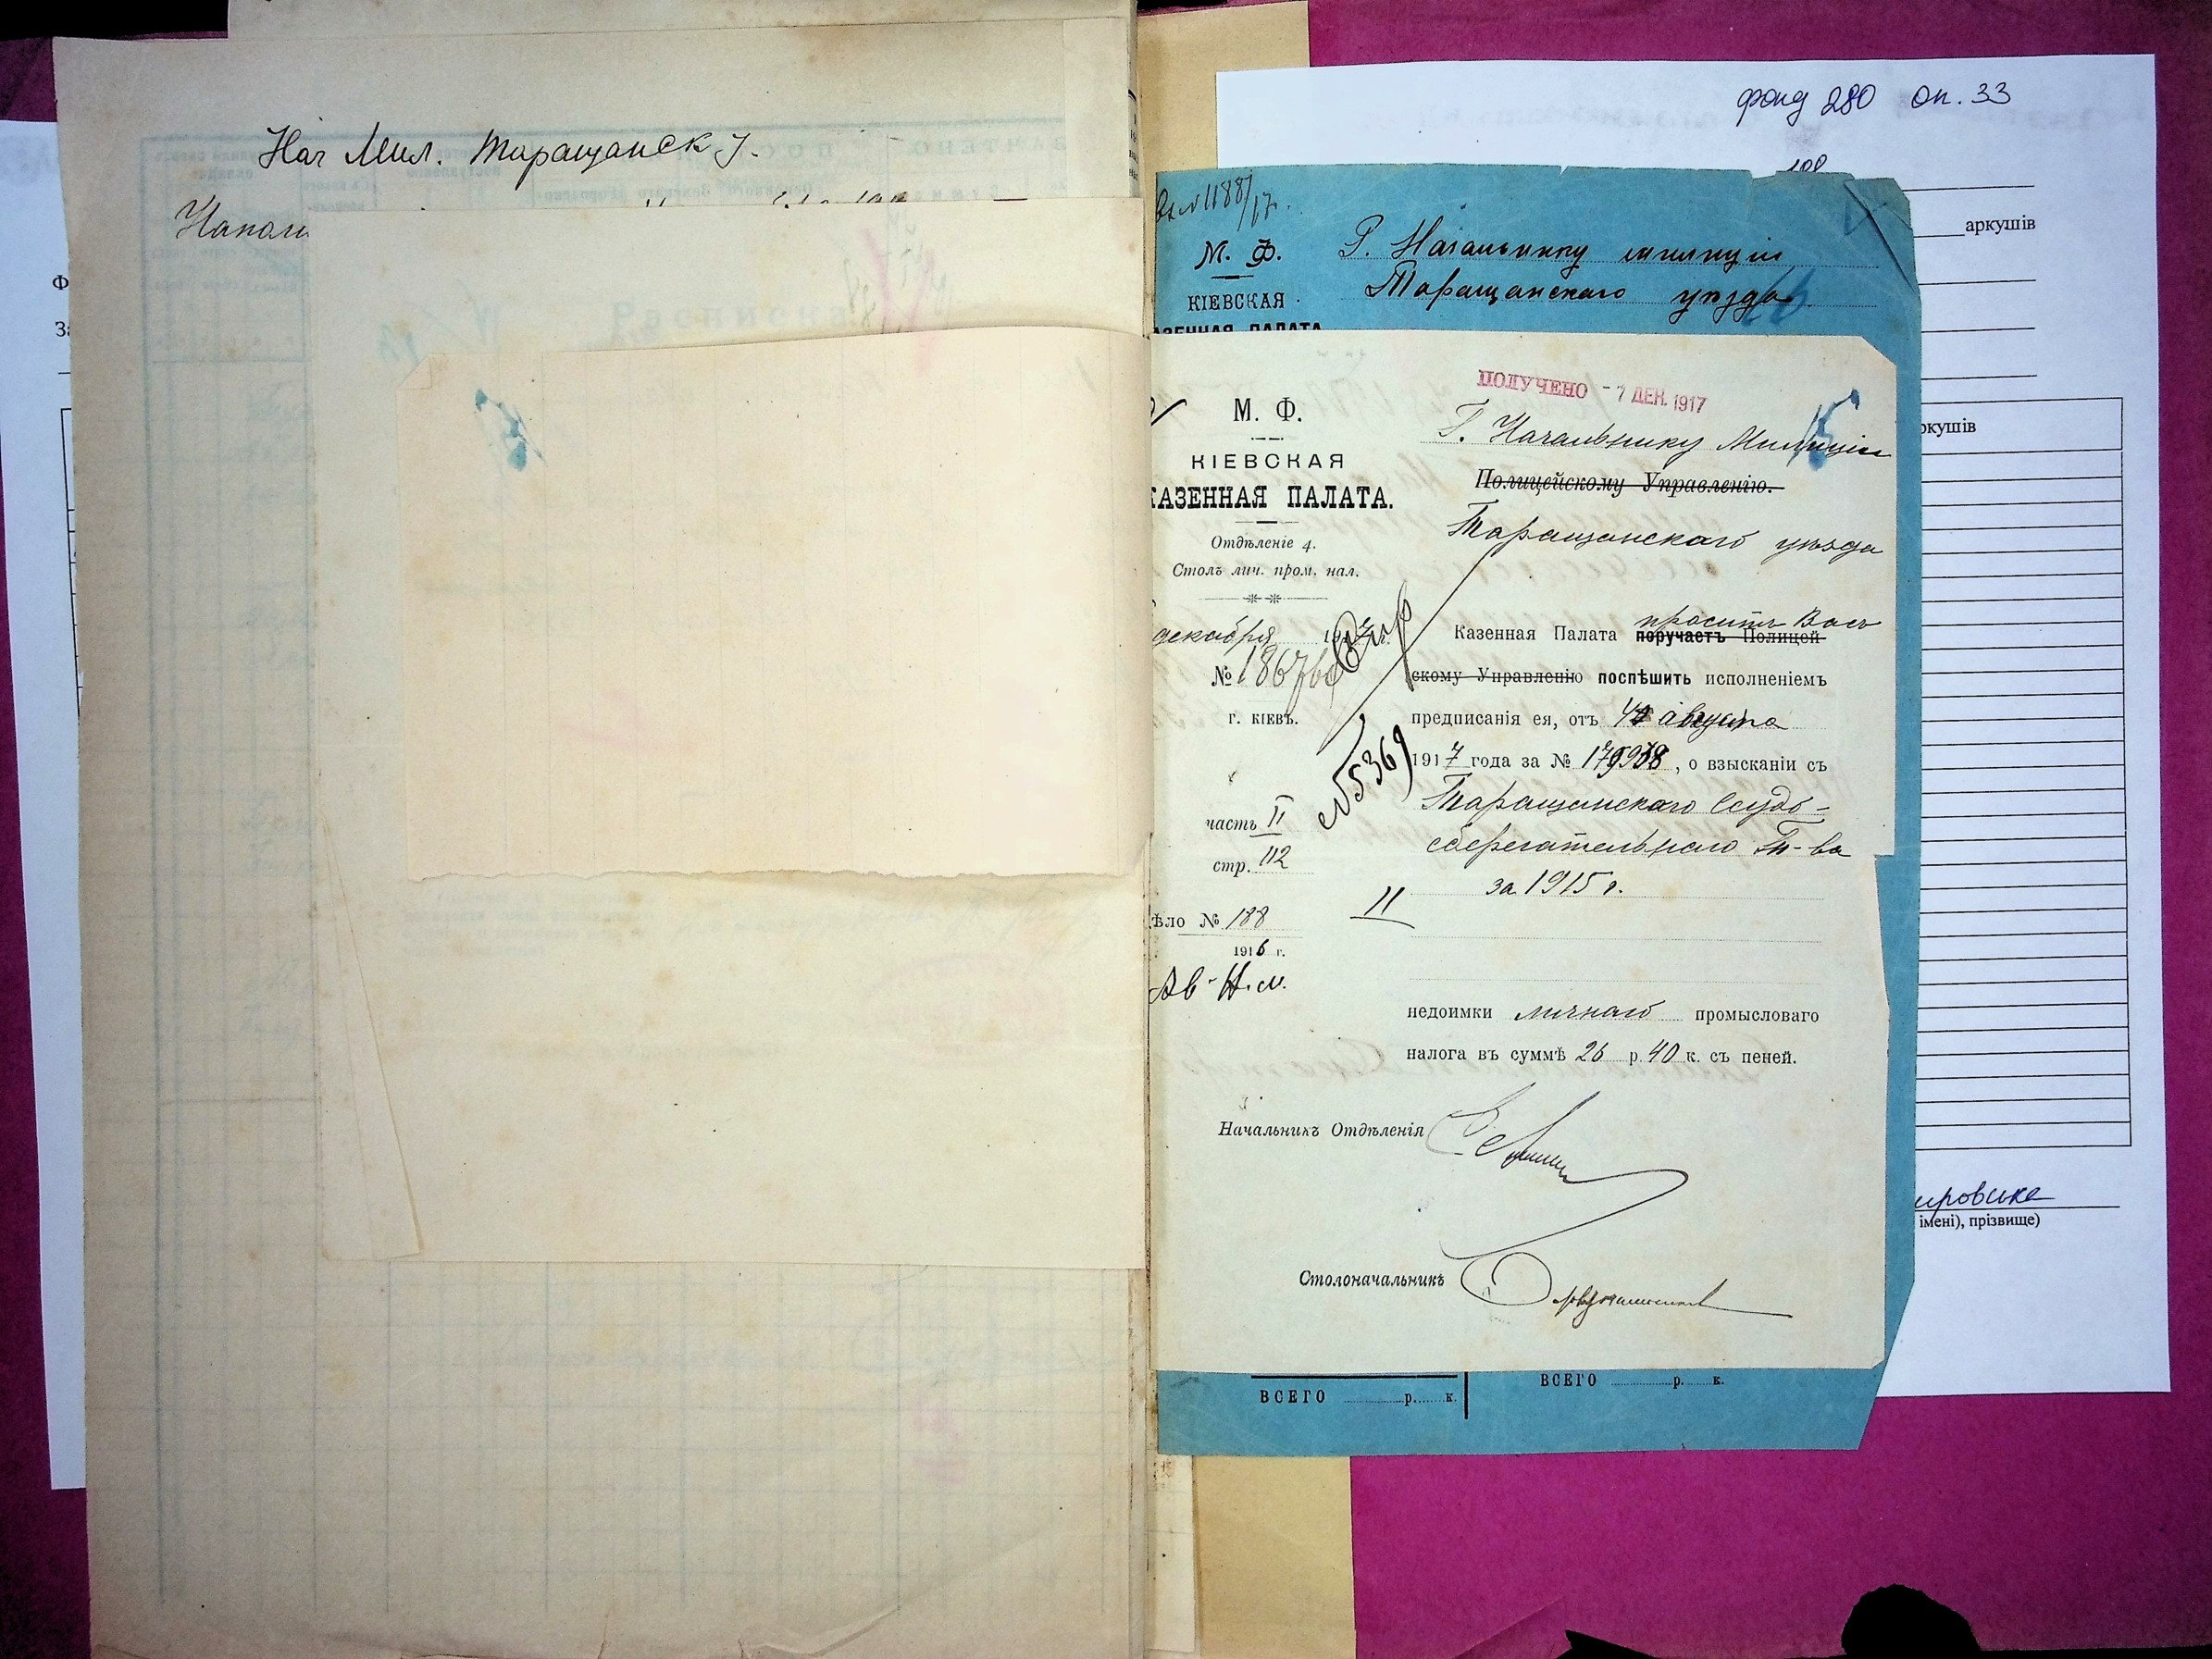 Нач Мил. Таращанск у.
фонд 280 оп. 33
аркушів
аркушів
ировська
імені), прізвище)
М. Ф.
КІЕВСКАЯ
Г. Начальнику милиціи
Таращанскаго уѣзда
ПОЛУЧЕНО - 7 ДЕК. 1917
М. Ф.
КІЕВСКАЯ
КАЗЕННАЯ ПАЛАТА.
Отдѣленіе 4.
Столъ лич. пром. нал.
декабря 1917 г.
№
г. КІЕВЪ.
часть II
стр. 112
ѣло № 188
1916 г.
№ 5369
15
Г. Начальнику Милиціи
Полицейскому Управленію.
Таращанскаго уѣзда
проситъ Васъ
Казенная Палата поручаетъ Полицей-
скому Управленію поспѣшить исполненіемъ
предписанія ея, отъ августа
1917 года за № , о взысканіи съ
Таращанскаго Ссудо-
сберегательнаго Т-ва
за 1915 г.
11
недоимки личнаго промысловаго
налога въ суммѣ 26 р. 40 к. съ пеней.
Начальникъ Отдѣленія
Столоначальникъ
ВСЕГО р. к.
ВСЕГО р. к.